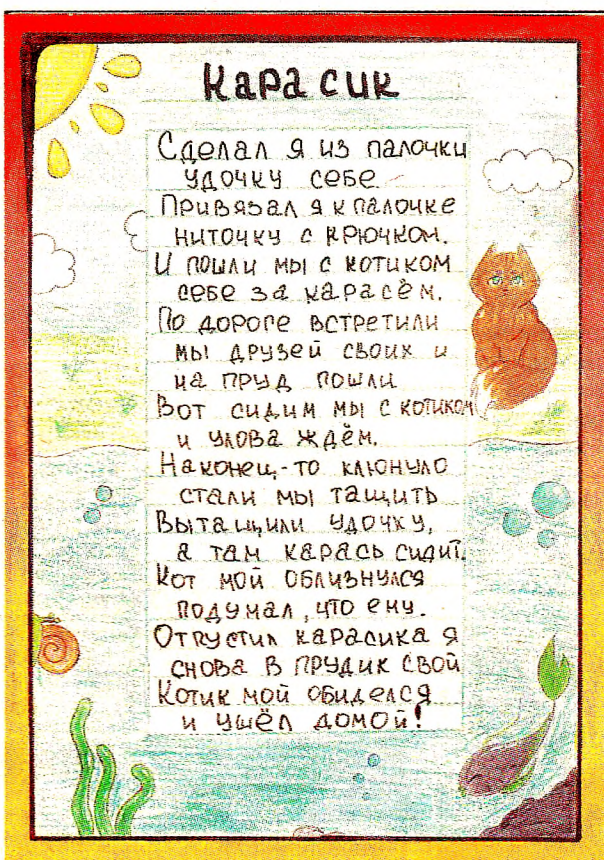 Карасик
Сделал я из палочки
удочку себе
Привязал я к палочке
ниточку с крючком.
И пошли мы с котиком
себе за карасём.
По дороге встретили
мы друзей своих и
на пруд пошли
Вот сидим мы с котиком
и улова ждём.
Наконец-то клюнуло
стали мы тащить
Вытащили удочку,
а там карась сидит.
Кот мой облизнулся
подумал, что ему.
Отпустил карасика я
снова в прудик свой
Котик мой обиделся
и ушёл домой!